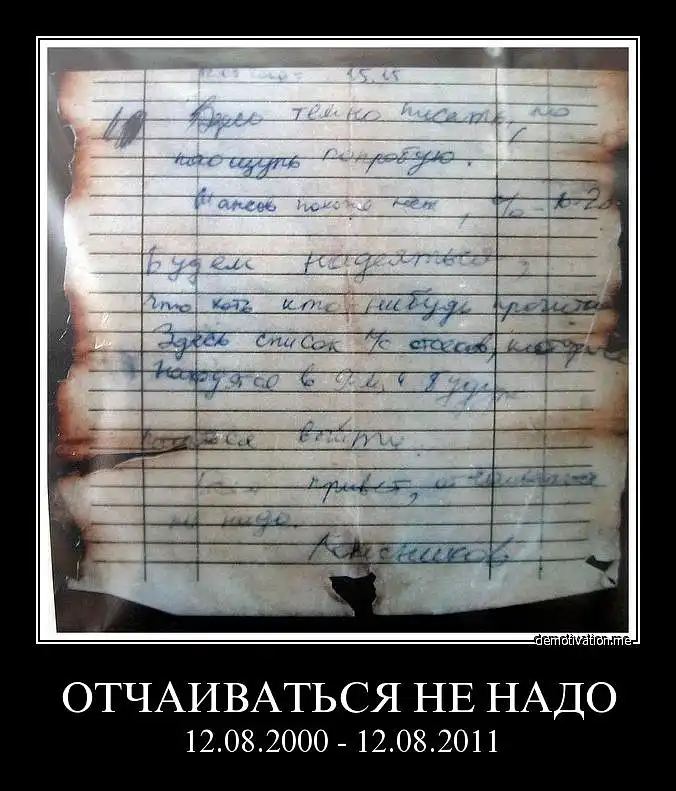 15.15
Здесь темно писать, но
наощупь попробую.
Шансов похоже нет, % 10-20.
Будем надеяться,
что хоть кто-нибудь прочитает
Здесь список л/с отсеков, которые
находятся в 9-м и будут
пытаться выйти.
Всем привет, отчаиваться
не надо.
Колесников
demotivation.me
ОТЧАИВАТЬСЯ НЕ НАДО
12.08.2000 - 12.08.2011